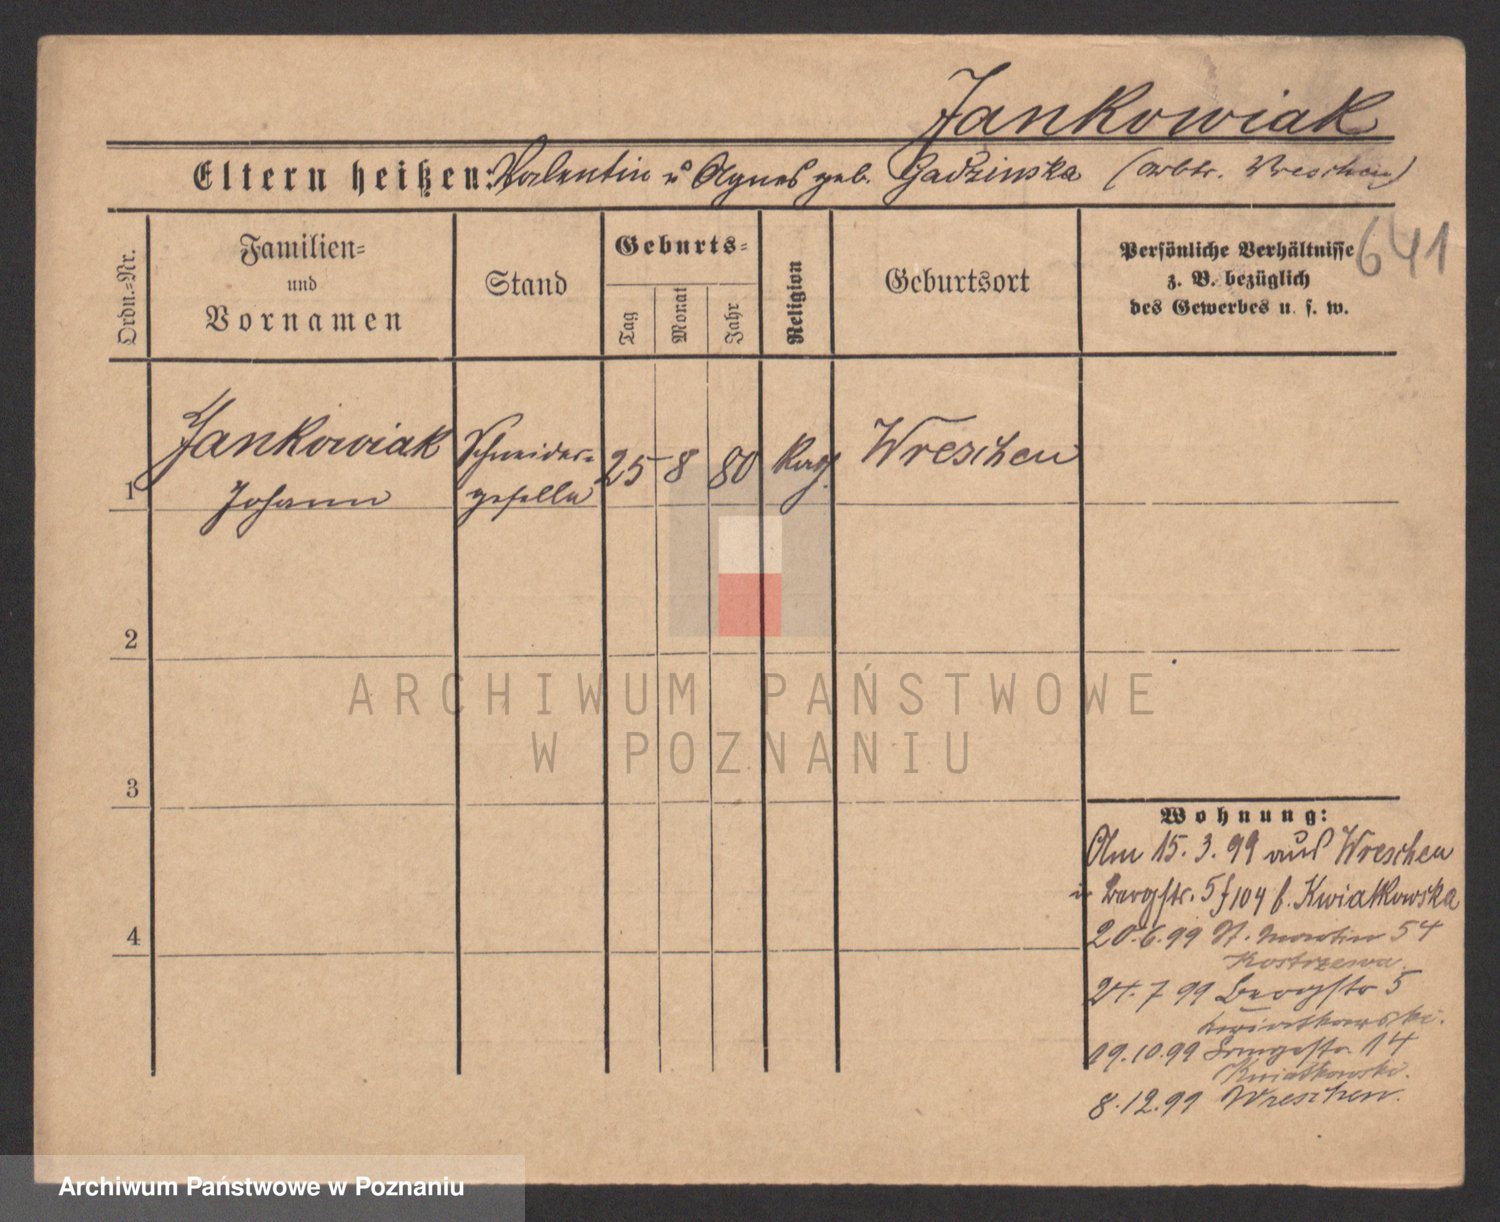 Jankowiak
Eltern heißen: Valentin u Agnes geb. Gadzinska (Arbtr. Wreschen)
641
Ordn.-Nr.
Familien-
und
Vornamen
Stand
Geburts-
Tag
Monat
Jahr
Religion
Geburtsort
Persönliche Verhältnisse
z. B. bezüglich
des Gewerbes u. s. w.
1
Jankowiak
Johann
Schneider-
geselle
25
8
80
Kath.
Wreschen
2
3
4
ARCHIWUM PAŃSTWOWE
W POZNANIU
Wohnung:
Am 15.3.99 aus Wreschen
Bergstr. 5 b. Kwiatkowska
20.6.99 St. Martin 54
Kostrzewa
24.7.99 Bergstr 5
Kwiatkowski.
19.10.99 Langestr. 14
Kwiatkowski.
8.12.99 Wreschen.
Archiwum Państwowe w Poznaniu